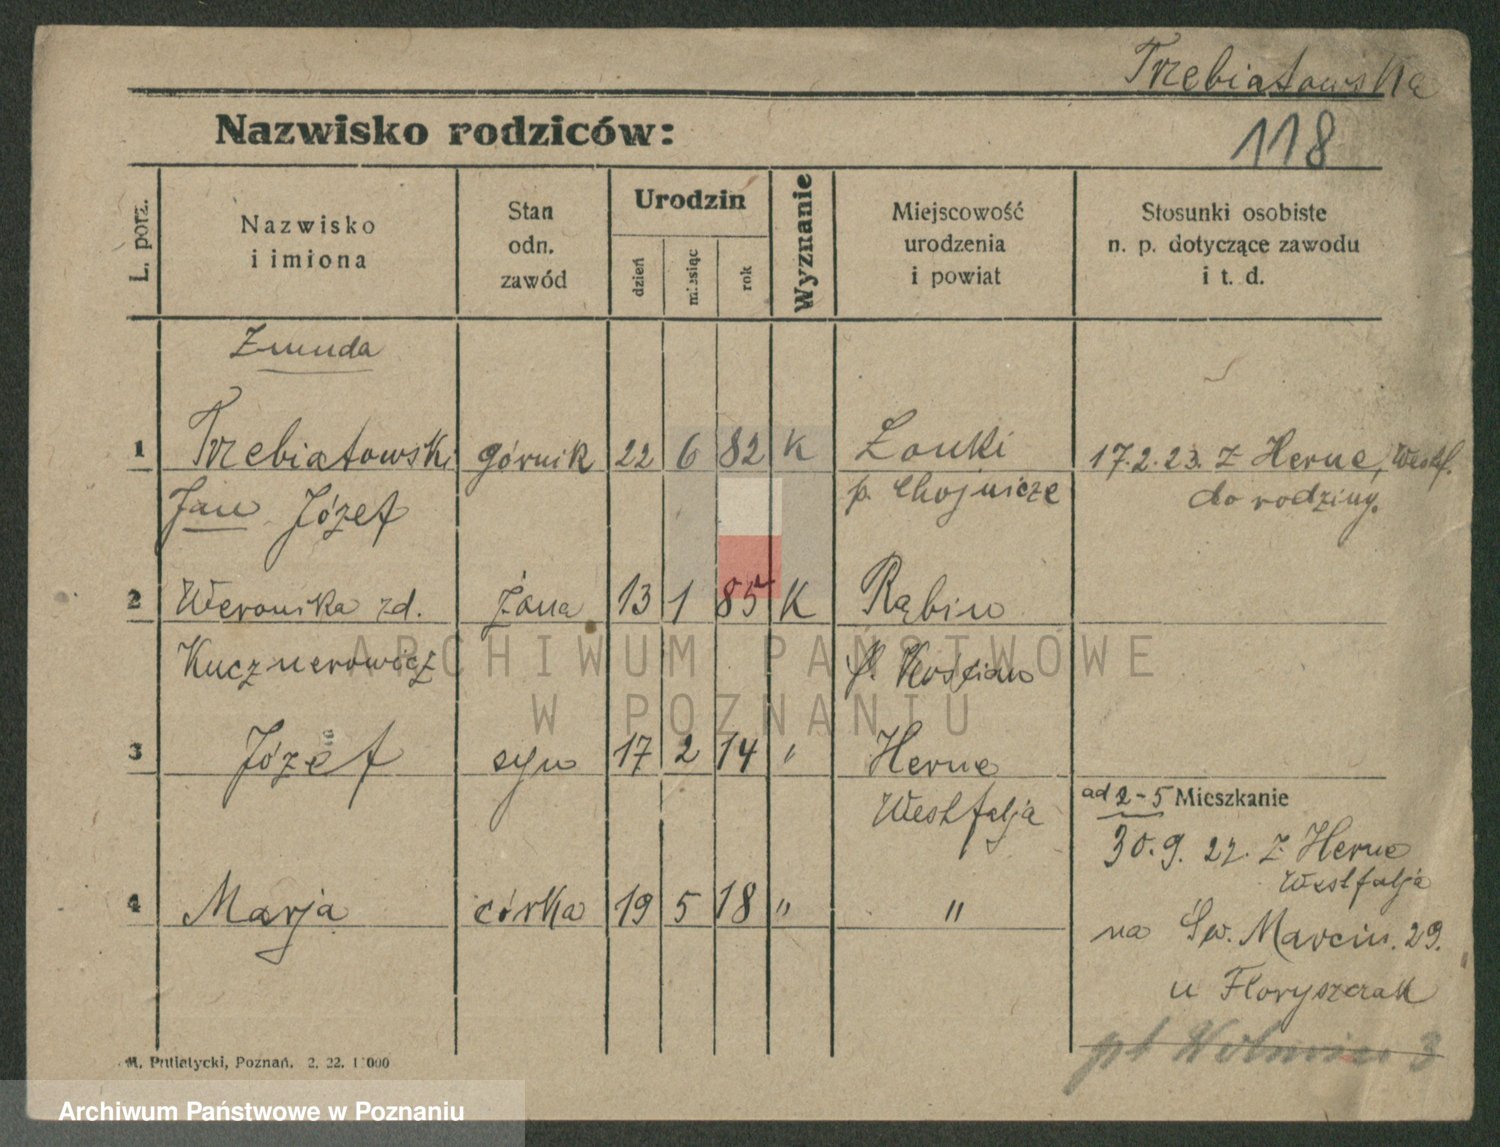 Trzebiatowska
118
Nazwisko rodziców:
L. porz.
Nazwisko
i imiona
Stan
odn.
zawód
Urodzin
dzień
miesiąc
rok
Wyznanie
Miejscowość
urodzenia
i powiat
Stosunki osobiste
n. p. dotyczące zawodu
i t. d.
Żmuda
1 Trzebiatowski górnik 22 6 82 K Łonki 17.2.23. z Herne, Westf.
Jan Józef p. Chojnicze do rodziny.
2 Weronika zd. żona 13 1 85 K Rąbin
Kucznerowicz p. Kościan
3 Józef syn 17 2 14 " Herne
Westfalja
ad 2-5 Mieszkanie
30.9. 22. z Herne
Westfalja
4 Marja córka 19 5 18 " "
na Św. Marcin. 29.
u Floryszczak
3
M. Putiatycki, Poznań. 2. 22. 1 000
ARCHIWUM PAŃSTWOWE
W POZNANIU
Archiwum Państwowe w Poznaniu